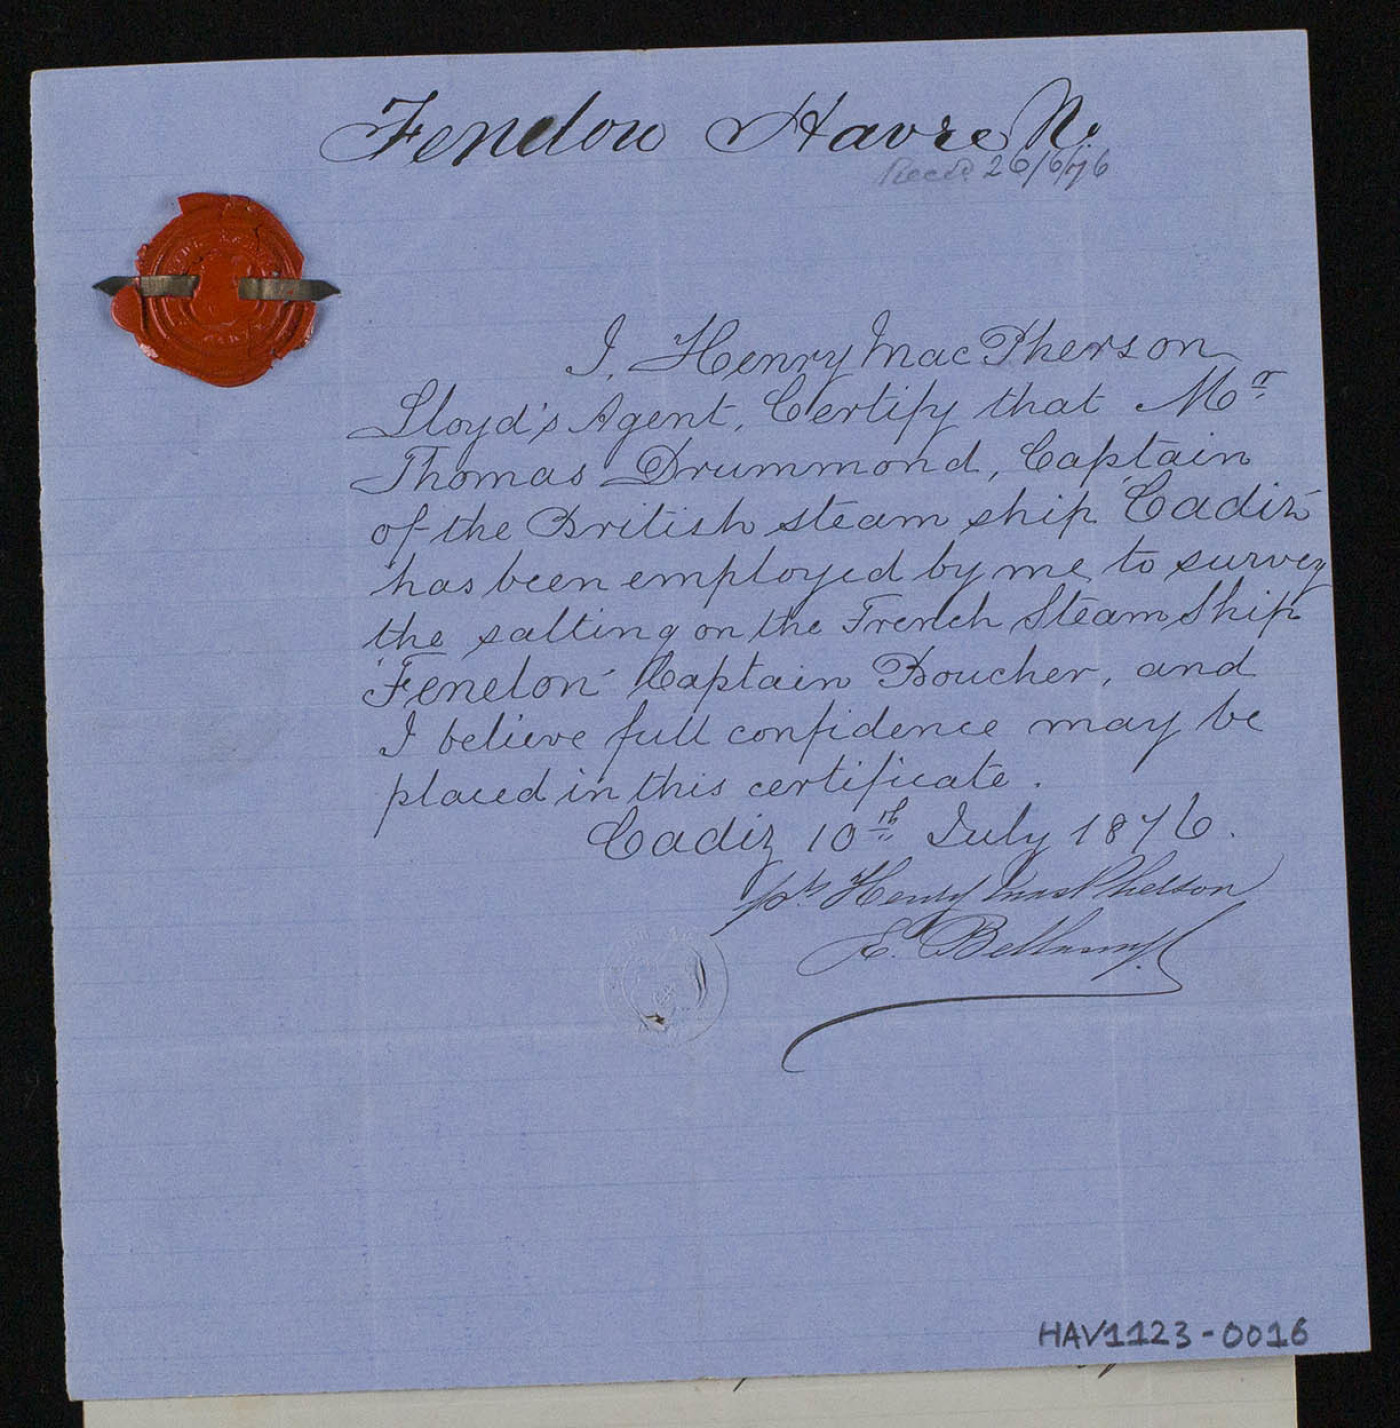 Fenelon Havre N.
Recd 26/6/76
I, Henry Mac Pherson
Lloyd's Agent, Certify that Mr
Thomas Drummond, Captain
of the British steam ship "Cadiz"
has been employed by me to survey
the salting on the French Steam Ship
"Fenelon" Captain Boucher, and
I believe full confidence may be
placed in this certificate.
Cadiz 10th July 1876.
Henry MacPherson
E. Bellamy
HAV1123-0016